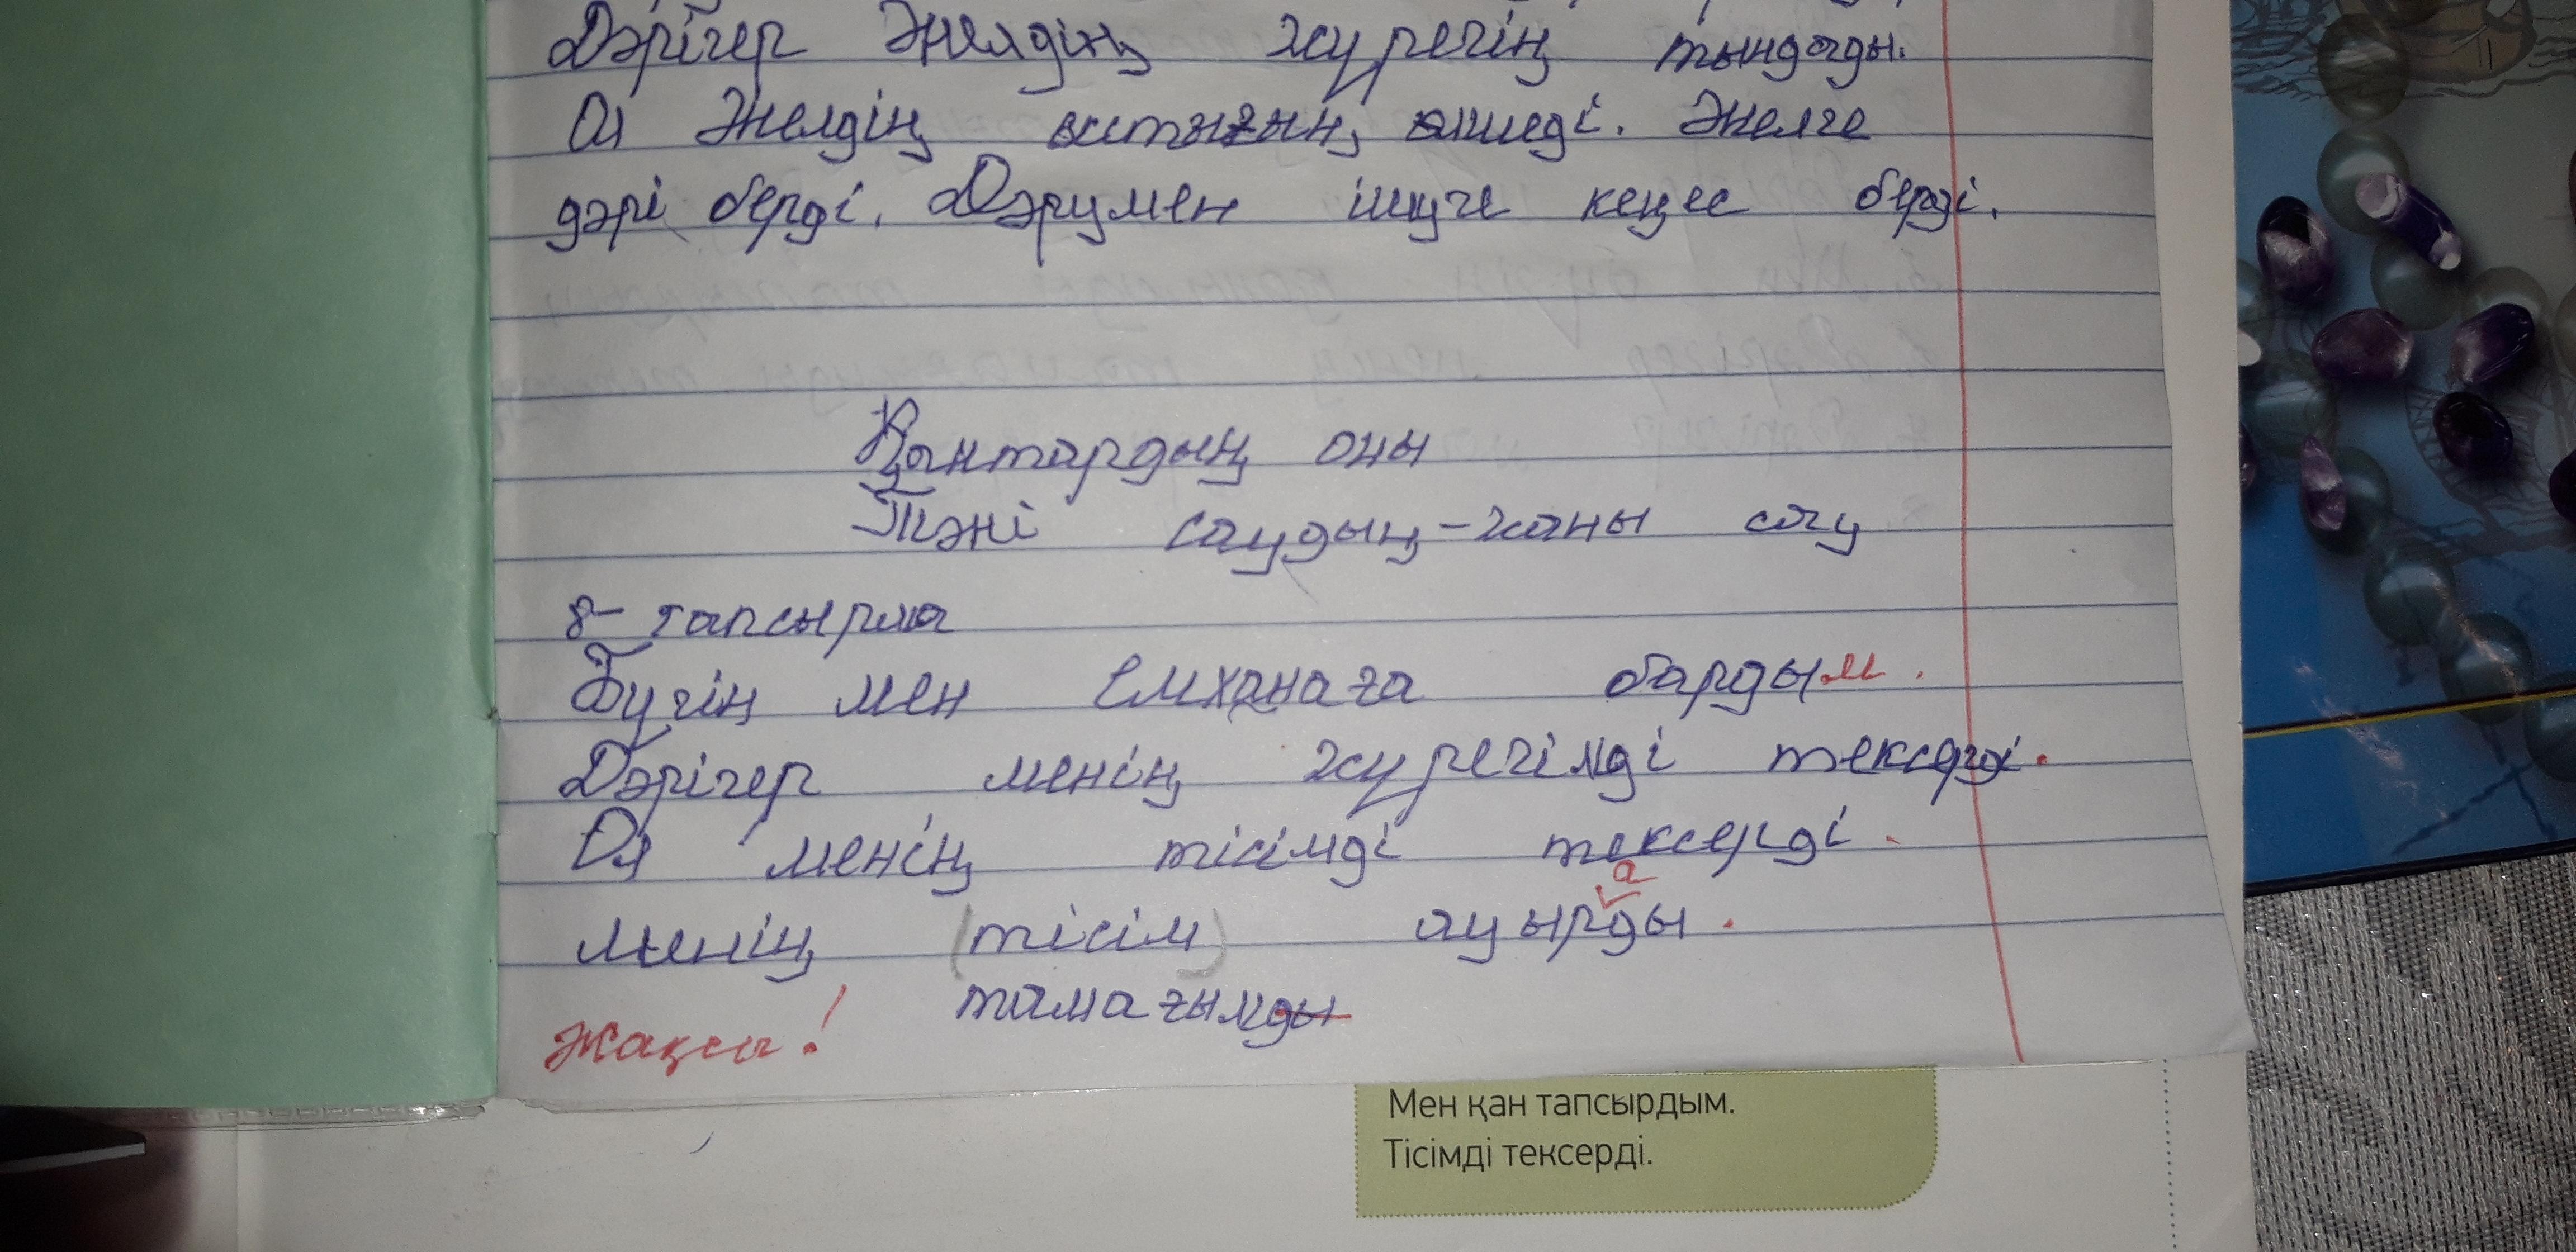 Дәрігер Әнелдің жүрегің тыңдады.
Ол Әнелдің ыстығың өлшеді. Әнелге
дәрі берді. Дәрумен ішуге кеңес берді.
Қаңтардың оны
Тәні саудың-жаны сау
8- тапсырма
Бүгің мен Емханаға бардым.
Дәрігер менің жүрегімді тексерді.
Ол менің тісімді тексерді.
а
менің (тісім) ауырды.
тамағымды
Жақсы!
Мен қан тапсырдым.
Тісімді тексерді.